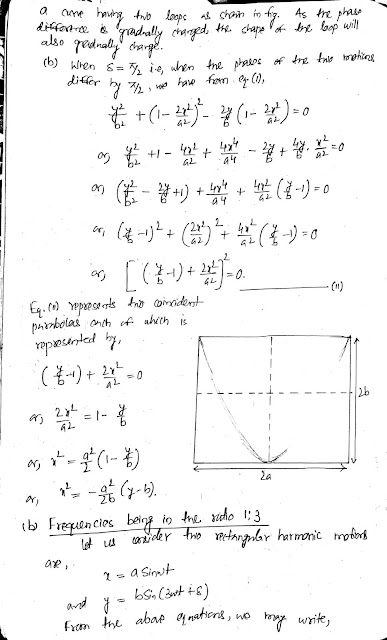 a curve having two loops as shown in fig. As the phase
difference is gradually changed, the shape of the loop will
also gradually change.
(b) When δ = π/2 i.e, when the phases of the two motions
differ by π/2, we have from eq (1),
y²/b² + (1 - 2x²/a²)² - 2y/b (1 - 2x²/a²) = 0
or, y²/b² + 1 - 4x²/a² + 4x⁴/a⁴ - 2y/b + 4y/b · x²/a² = 0
or, (y²/b² - 2y/b + 1) + 4x⁴/a⁴ + 4x²/a² (y/b - 1) = 0
or, (y/b - 1)² + (2x²/a²)² + 4x²/a² (y/b - 1) = 0
or, [(y/b - 1) + 2x²/a²]² = 0. (11)
Eq. (11) represents two coincident
parabolas each of which is
represented by,
(y/b - 1) + 2x²/a² = 0
or, 2x²/a² = 1 - y/b
or, x² = a²/2 (1 - y/b)
or, x² = - a²/2b (y - b).
2b
2a
(b) Frequencies being in the ratio 1:3
let us consider two rectangular harmonic motions
are,
x = a sinωt
and y = b sin (3ωt + δ)
From the above equations, we may write,